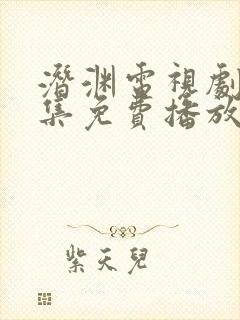 潛渊電視劇
集免費播放
紫天兒